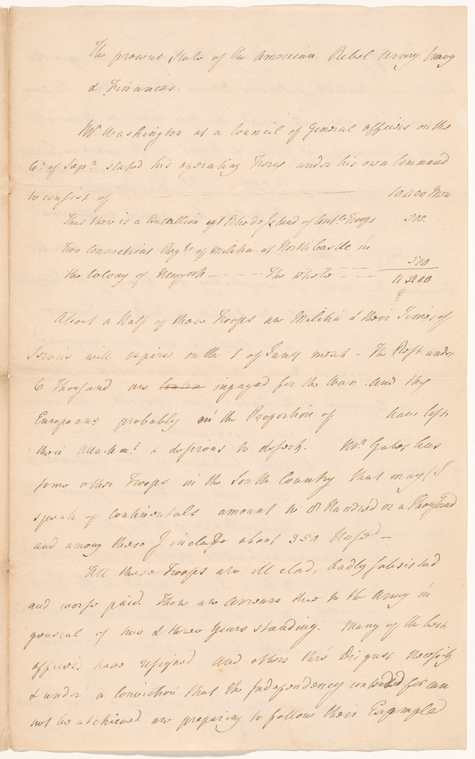 The present State of the American Rebel Army Navy
& Finances.
Mr. Washington at a Council of General officers on the
6th of Sepr. stated his operating Force under his own Command
to consist of 10400 Men
That there is a Battallion at Rhode Island of Contl. Troops 500.
two Connecticut Regts. of Militia at North Castle in
the Colony of Newyork The whole 500
11400
About a Half of these Troops are Militia & their Times of
Service will expire on the 1 of Jany next - The Rest under
6 thousand are ingaged for the War and the
Europeans probably in the Proportion of have less
their Attachmt. & desirous to desert. Mr. Gates has
some other Troops in the South Country that may (I
speak of Continentals amount to 8 Hundred or a Thousand
and among these I include about 350 Horse -
All these Troops are ill clad, badly subsisted
and worse paid. There are arrears due to the Army in
general of two & three Years standing. Many of the best
officers have resigned and others thro' Disgust Necessity
& under a conviction that the Independency contended for can
not be atchieved are preparing to follow their Example